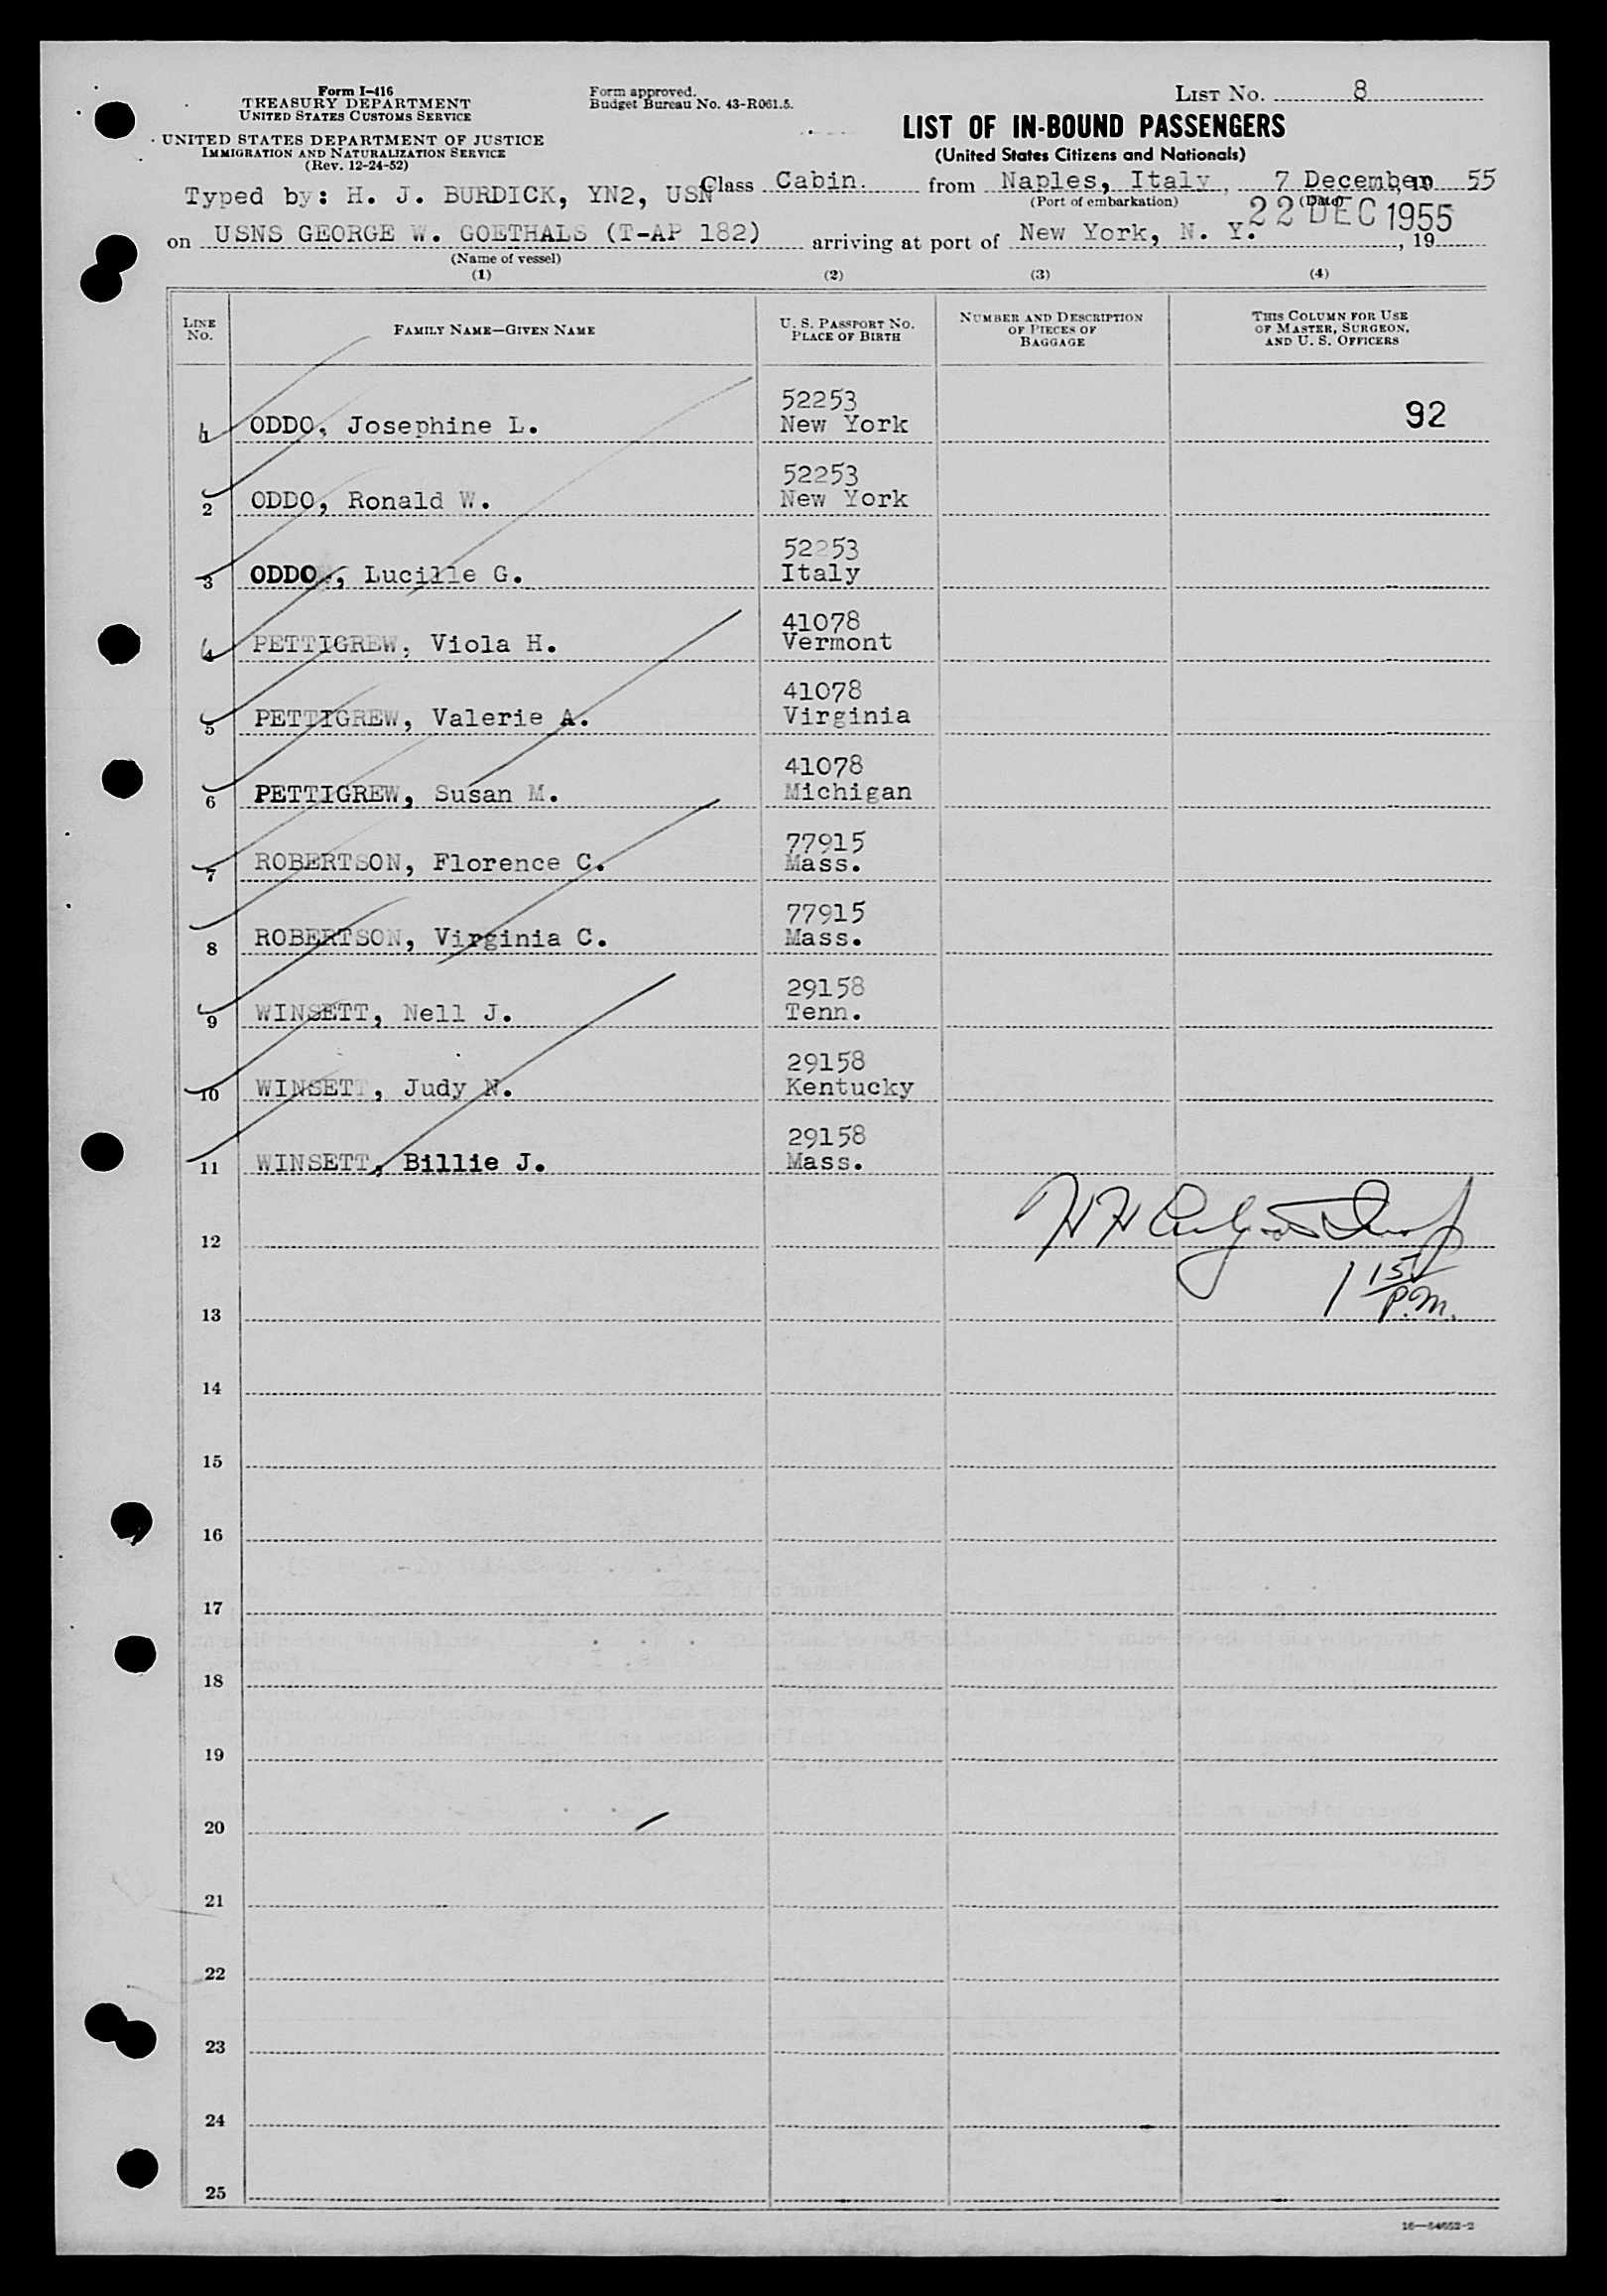 Form I-416
TREASURY DEPARTMENT
UNITED STATES CUSTOMS SERVICE
UNITED STATES DEPARTMENT OF JUSTICE
IMMIGRATION AND NATURALIZATION SERVICE
(Rev. 12-24-52)
Form approved.
Budget Bureau No. 43-R061.5.
LIST No. 8
LIST OF IN-BOUND PASSENGERS
(United States Citizens and Nationals)
Typed by: H. J. BURDICK, YN2, USN
Class Cabin. from Naples, Italy, 7 December, 19 55
(Port of embarkation) (Date)
on USNS GEORGE W. GOETHALS (T-AP 182) arriving at port of New York, N. Y. 22 DEC 1955, 19
(Name of vessel)
(1) (2) (3) (4)
LINE No. FAMILY NAME—GIVEN NAME U. S. PASSPORT NO. PLACE OF BIRTH NUMBER AND DESCRIPTION OF PIECES OF BAGGAGE THIS COLUMN FOR USE OF MASTER, SURGEON, AND U. S. OFFICERS
52253
1 ODDO, Josephine L. New York 92
52253
2 ODDO, Ronald W. New York
52253
3 ODDO, Lucille G. Italy
41078
4 PETTIGREW, Viola H. Vermont
41078
5 PETTIGREW, Valerie A. Virginia
41078
6 PETTIGREW, Susan M. Michigan
77915
7 ROBERTSON, Florence C. Mass.
77915
8 ROBERTSON, Virginia C. Mass.
29158
9 WINSETT, Nell J. Tenn.
29158
10 WINSETT, Judy N. Kentucky
29158
11 WINSETT, Billie J. Mass.
12
1 15 P.M.
13
14
15
16
17
18
19
20
21
22
23
24
25